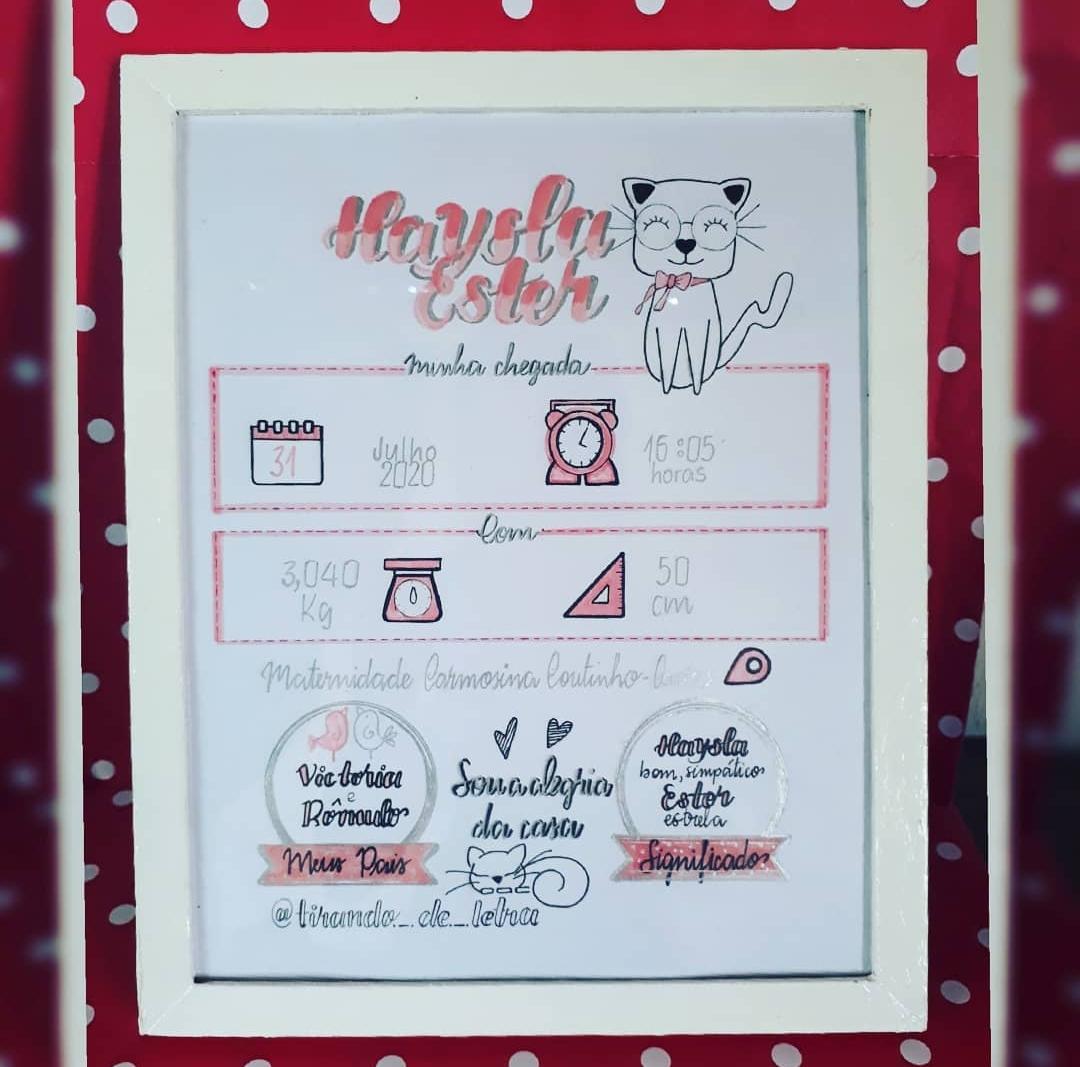 Haysla
Ester
minha chegada
31
Julho
2020
16:05
horas
Com
3,040
Kg
50
cm
Maternidade Carmosina Coutinho-
Victoria
e
Rômulo
Meus Pais
Sou a alegria
da casa
Haysla
bom, simpático
Ester
estrela
Significado
@tirando_de_letra